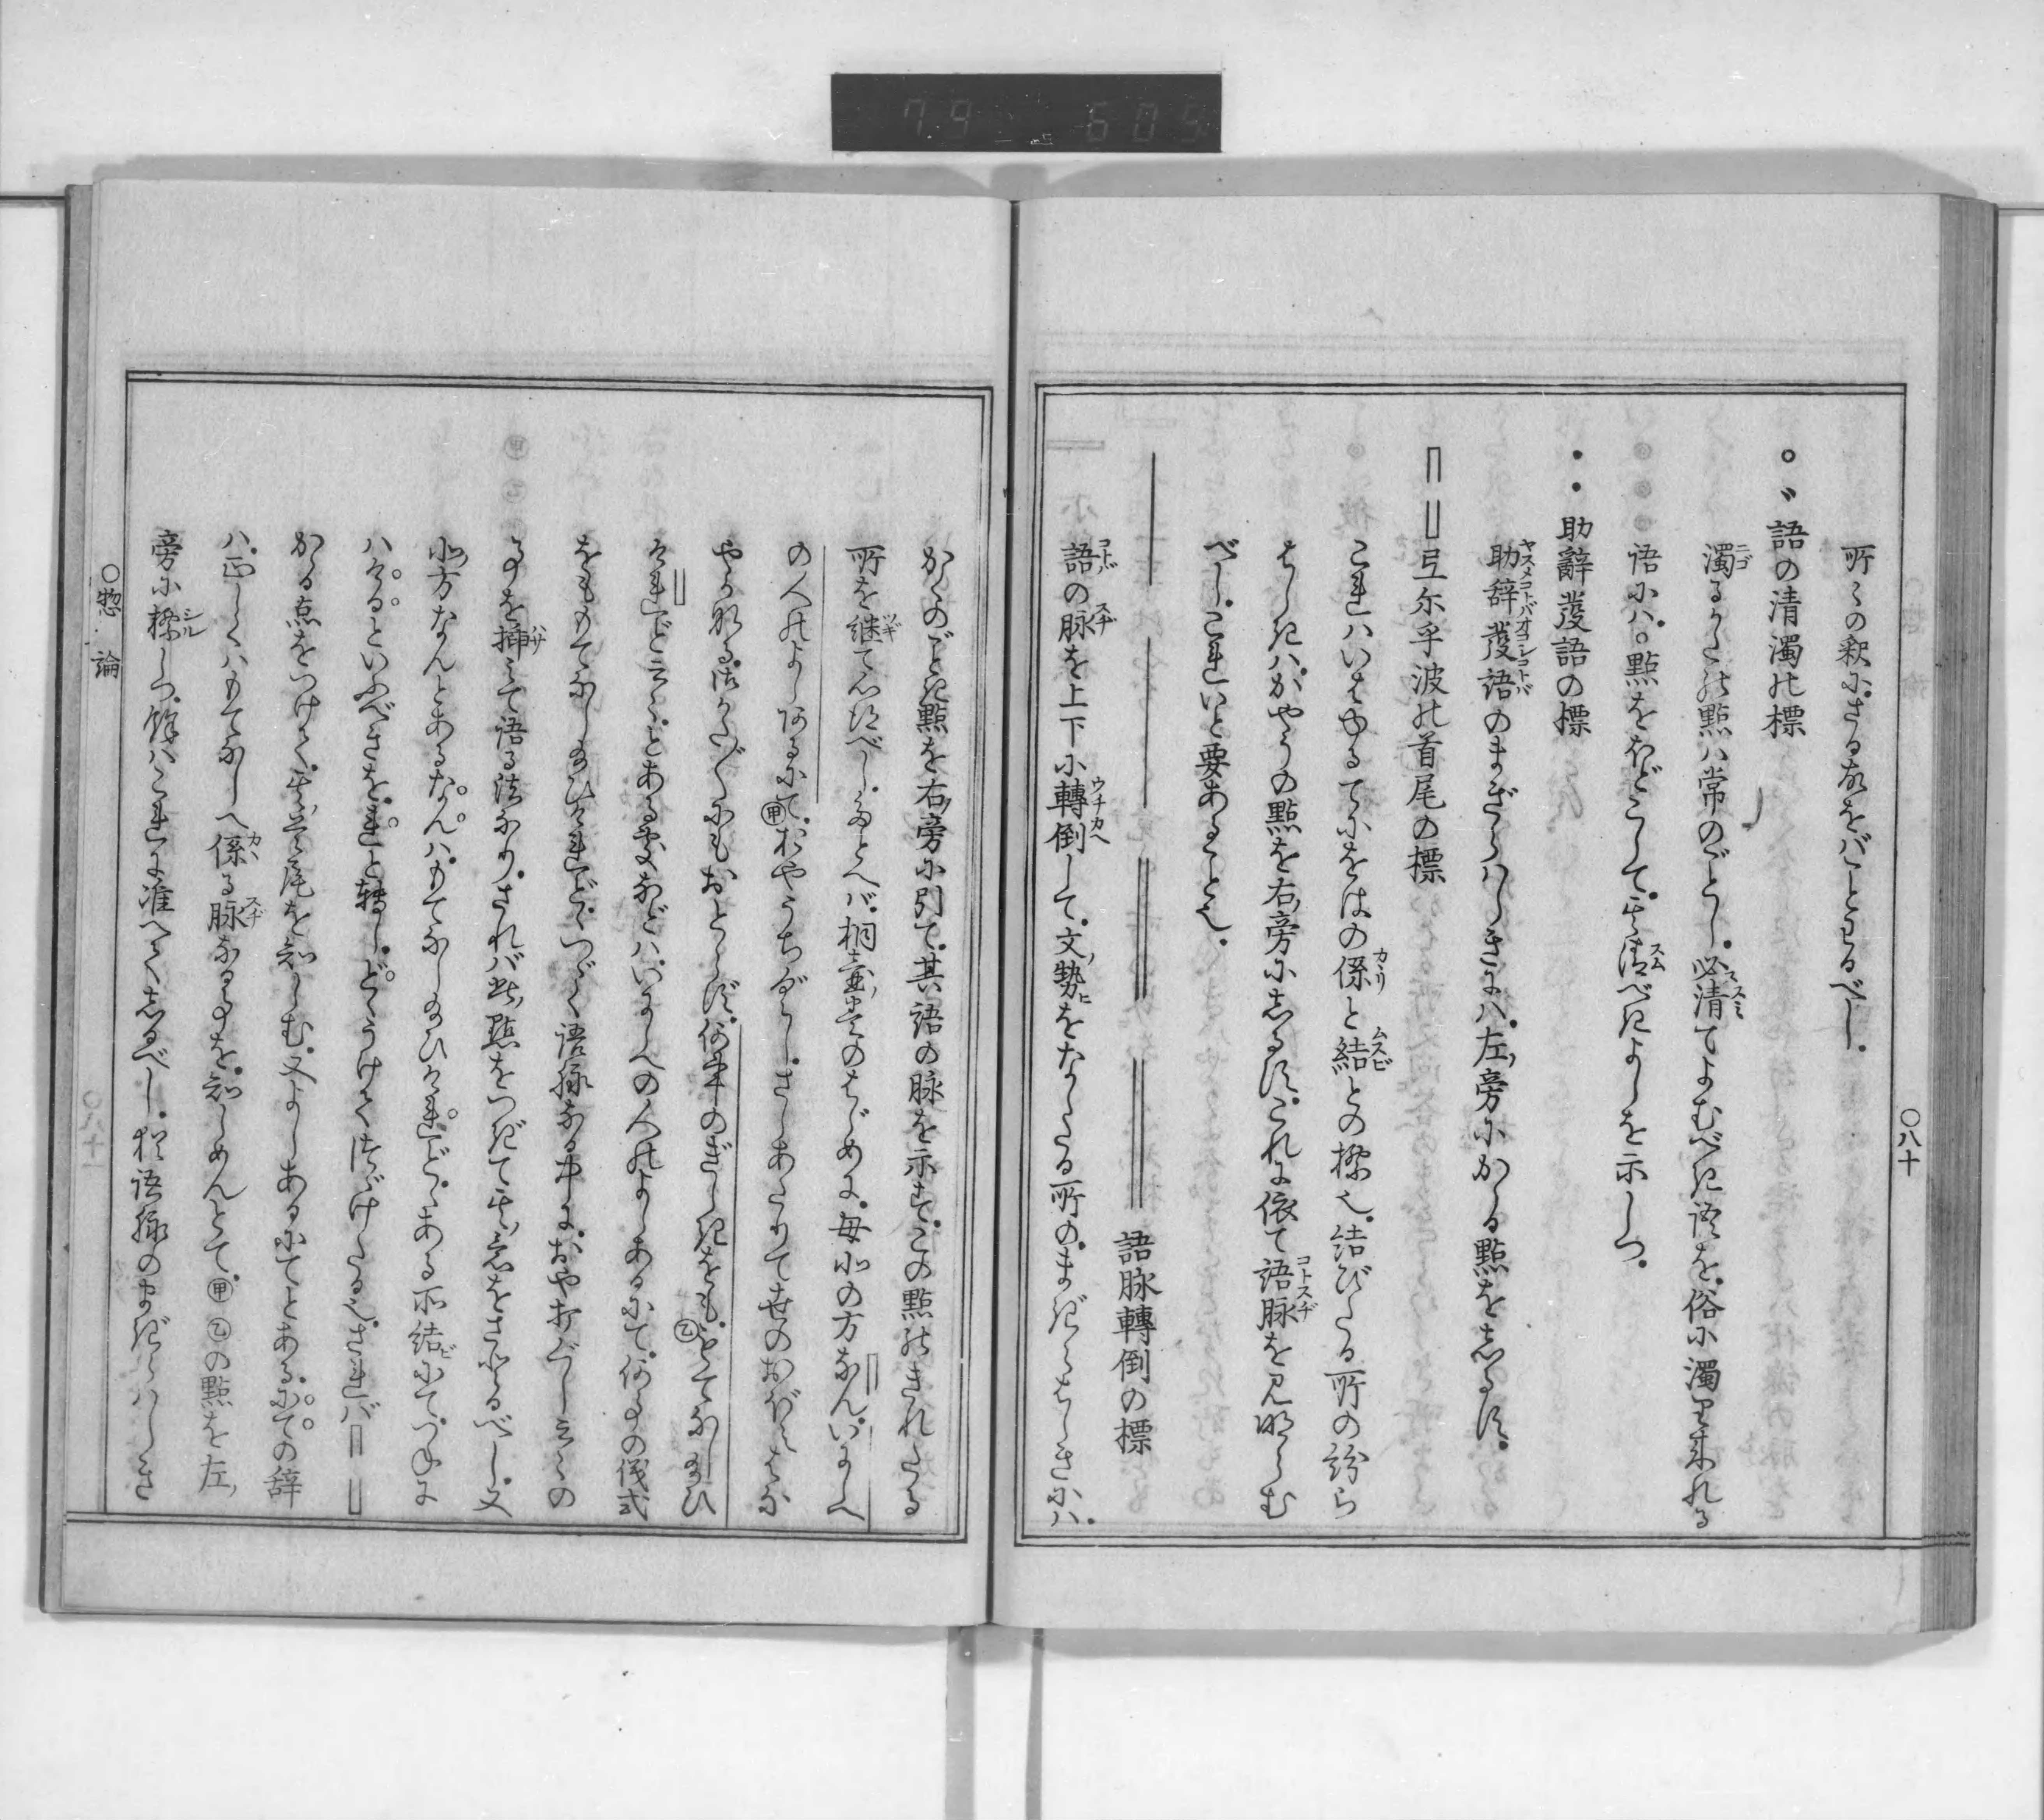 所々の釈に。さる故をバことわるべし。
○ ゛語の清濁の標
濁るかたの點ハ常のごとし。必清てよむべき語を。俗に濁り来れる
語にハ。○點をほどこして。其清べきよしを示しつ。
・・助辭發語の標
助辞發語のまぎらハしきにハ。左旁にかゝる點をしるす。
弖尓乎波の首尾の標
これハいはゆるてにをはの係と結との標也。結びたる所の紛ら
はしきハ。かやうの點を右旁にしるす。これに依て語脉を見明らむ
べし。これいと要あること也。
語脉轉倒の標
語の脉を上下に轉倒して。文勢をなしたる所の。まぎらはしきにハ。
〇八十
かくのごとき點を右旁に引て。其語の脉を示す。この點のきれたる
所を継て心得べし。たとへバ。桐壷巻のはじめに。母北の方なん。いにしへ
の人のよしあるにて。㊥おやうちぐし。さしあたりて世のおぼえはな
やかなる御かた〴〵にもおとらず。何事のぎしきをも。㋪もてなし給ひ
けれどと云々。とある文などハ。いにしへの人のよしあるにて。何事の儀式
をももてなし給ひけれど。とつゞく語脉なる中に。おや打ぐし云々の
事を挿みて語る法なり。されバ此點をつぎて其意をさとるべし。又
北方なんとあるなんハ。もてなし給ひけれど。とある所結にて。つねに
ハける。といふべきを。れと轉し。どとうけてつゞけたる也。されバ
かゝる点をつけて。其首尾を知らしむ。又よしあるにてとある。にての辞
ハ。正しくハもてなしへ係る脉なる事を。知しめんとて。㊥㋪の點を左
旁に標しつ。餘ハこれに准へてしるべし。猶語脉のまぎらハしき
〇惣論